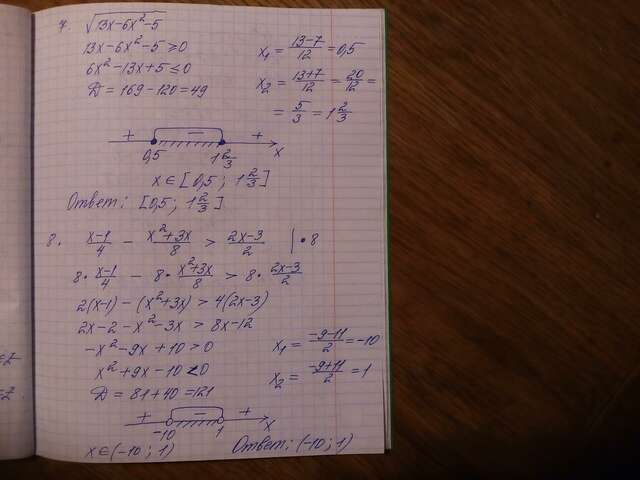 7. √(13x-6x²-5)
13x-6x²-5 ≥ 0
6x²-13x+5 ≤ 0
D = 169-120 = 49
x₁ = (13-7)/12 = 0,5
x₂ = (13+7)/12 = 20/12 =
= 5/3 = 1 2/3
+ − +
0,5 1 2/3 x
x ∈ [0,5; 1 2/3]
Ответ: [0,5; 1 2/3]
8. (x-1)/4 - (x²+3x)/8 > (2x-3)/2 | • 8
8 • (x-1)/4 - 8 • (x²+3x)/8 > 8 • (2x-3)/2
2(x-1) - (x²+3x) > 4(2x-3)
2x-2-x²-3x > 8x-12
-x²-9x+10 > 0
x²+9x-10 < 0
D = 81+40 = 121
x₁ = (-9-11)/2 = -10
x₂ = (-9+11)/2 = 1
+ − +
-10 1 x
x ∈ (-10; 1) Ответ: (-10; 1)